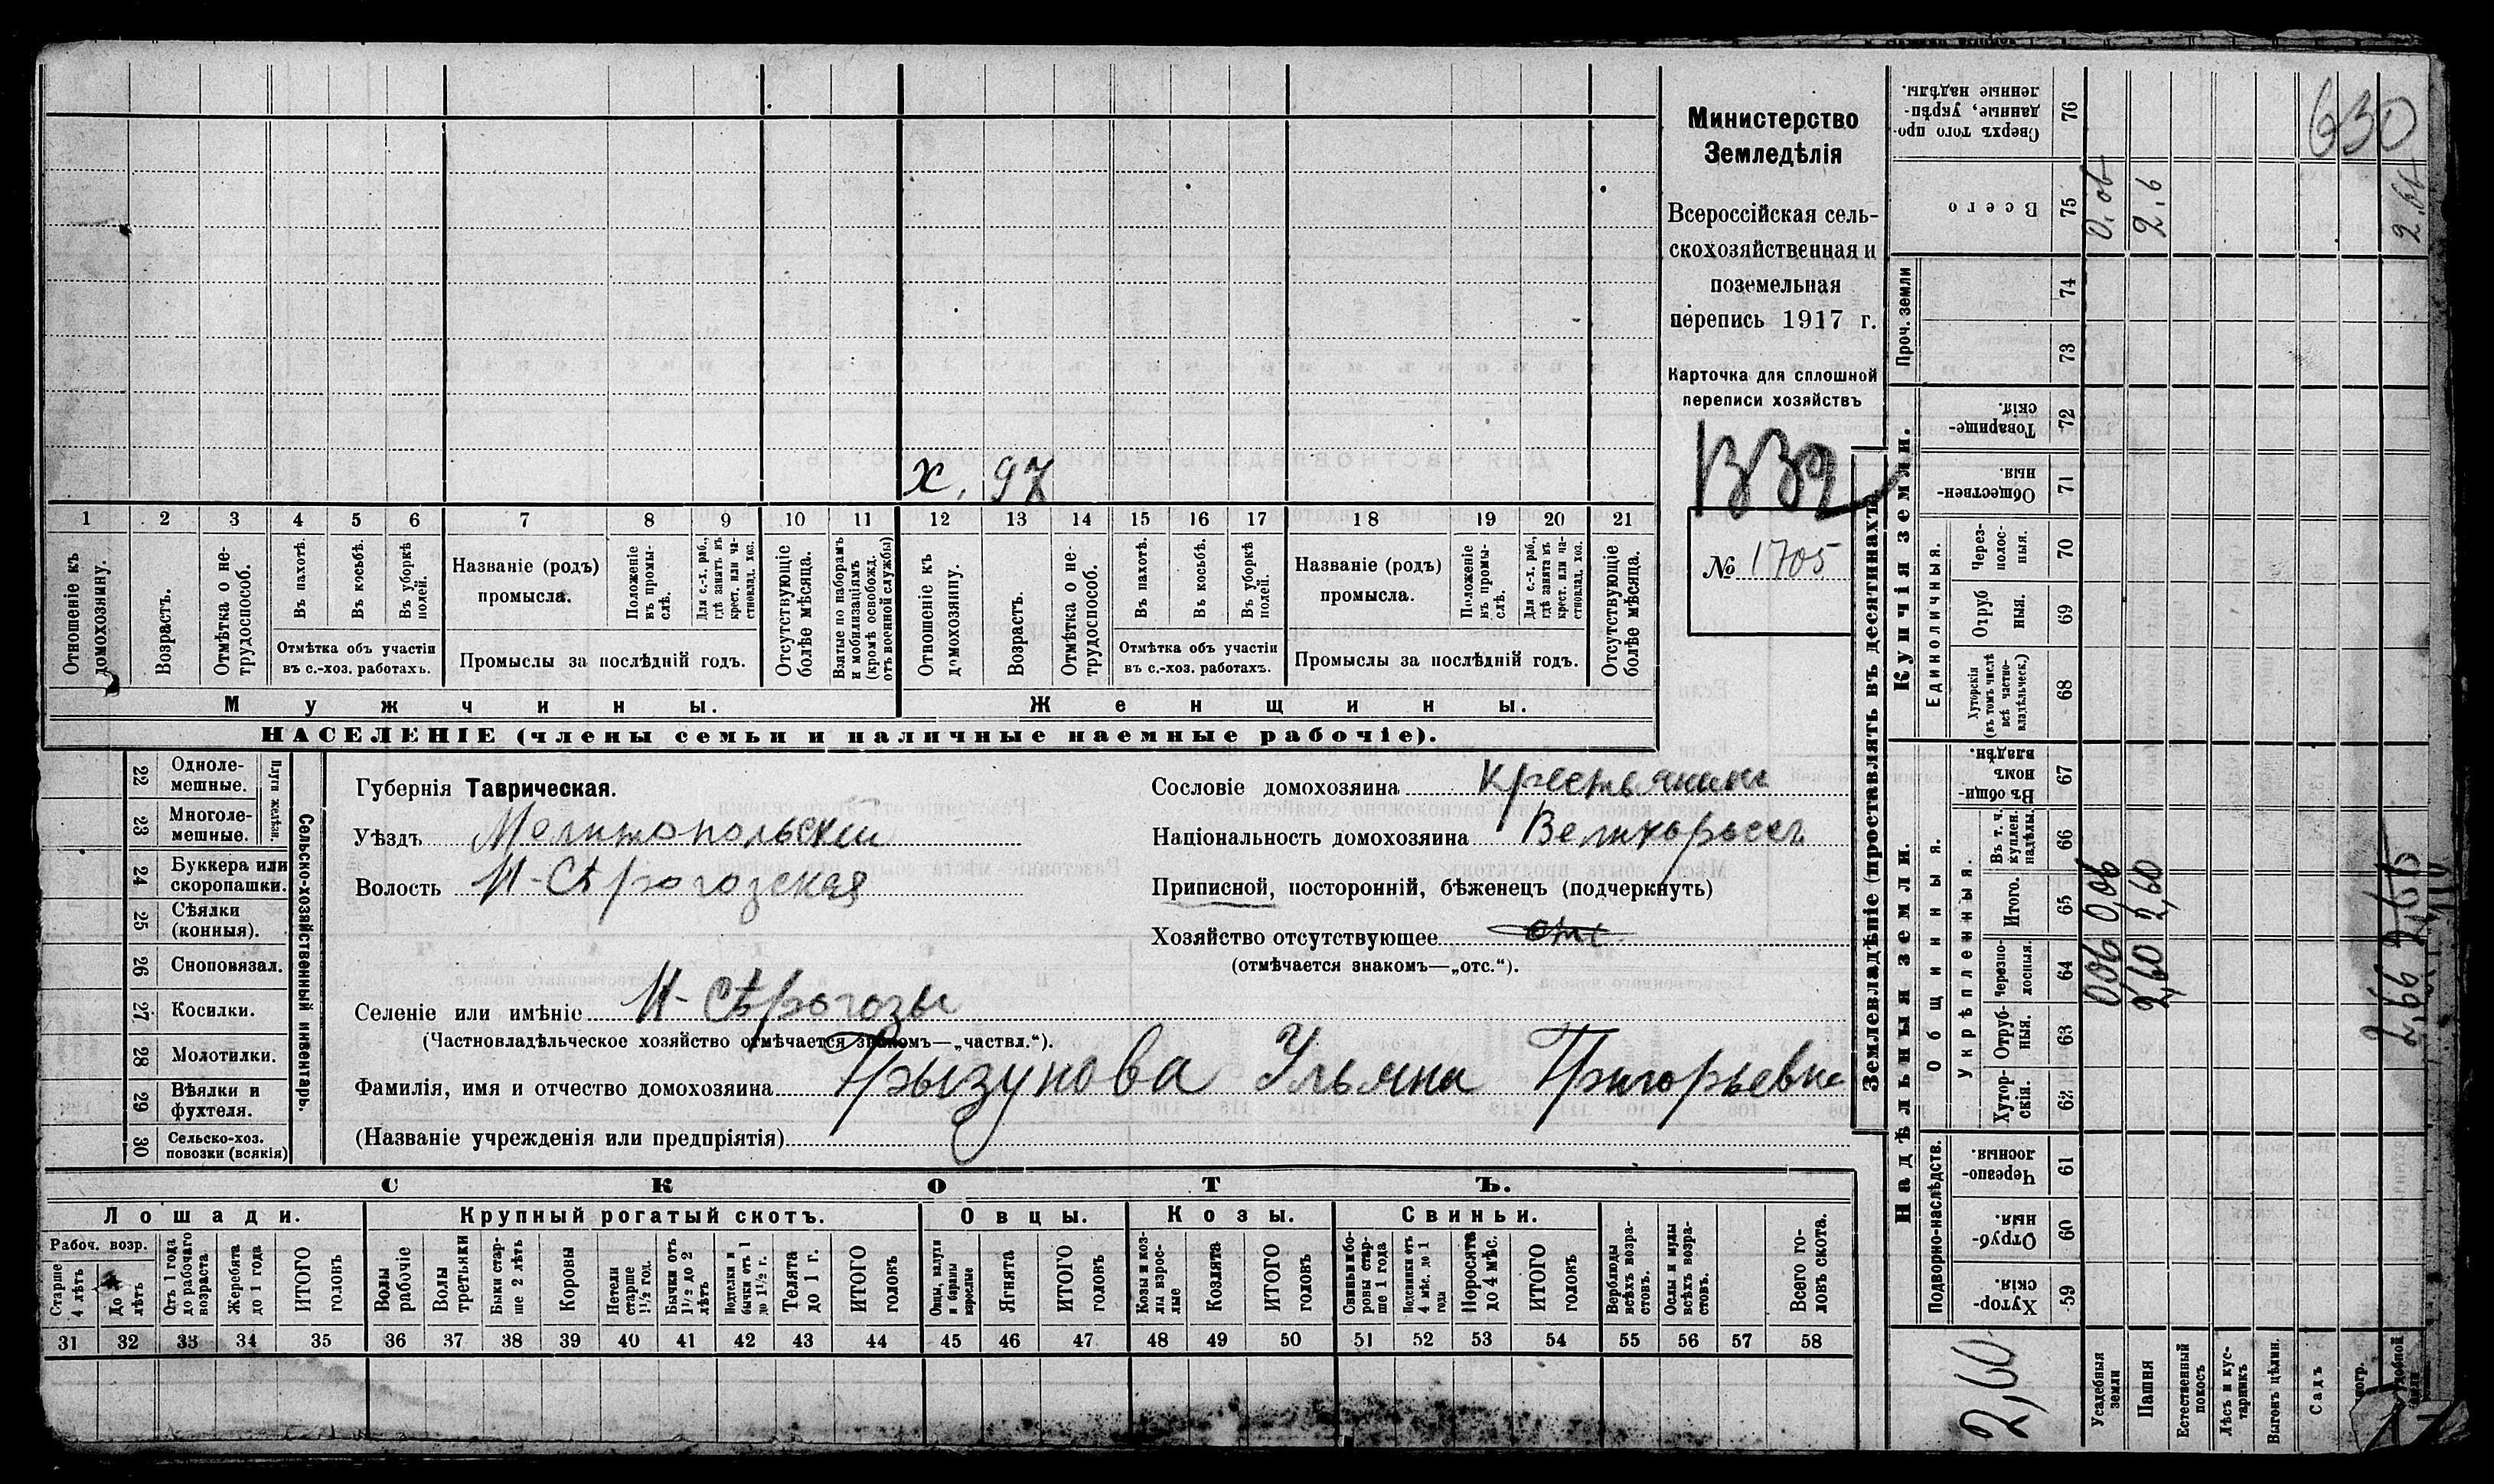 Министерство
Земледѣлія
Всероссійская сель-
скохозяйственная и
поземельная
перепись 1917 г.
Карточка для сплошной
переписи хозяйствъ
№ 1705
630
х. 97
1 2 3 4 5 6 7 8 9 10 11 12 13 14 15 16 17 18 19 20 21
Отношеніе къ домохозяину.
Возрастъ.
Отмѣтка о не-трудоспособ.
Въ пахотѣ.
Въ косьбѣ.
Въ уборкѣ полей.
Отмѣтка объ участіи
въ с.-хоз. работахъ.
Названіе (родъ)
промысла.
Положеніе въ промы-слѣ.
Для с.-х. раб., гдѣ занятъ въ крест. или ча-стновлад. хоз.
Промыслы за послѣдній годъ.
Отсутствующіе болѣе мѣсяца.
Взятые по наборамъ и мобилизаціямъ (кромѣ освобожд. отъ военной службы)
Отношеніе къ домохозяину.
Возрастъ.
Отмѣтка о не-трудоспособ.
Въ пахотѣ.
Въ косьбѣ.
Въ уборкѣ полей.
Отмѣтка объ участіи
въ с.-хоз. работахъ.
Названіе (родъ)
промысла.
Положеніе въ промы-слѣ.
Для с.-х. раб., гдѣ занята въ крест. или ча-стновлад. хоз.
Промыслы за послѣдній годъ.
Отсутствующіе болѣе мѣсяца.
Мужчины.
Женщины.
НАСЕЛЕНІЕ (члены семьи и наличные наемные рабочіе).
Сельско-хозяйственный инвентарь.
Плуги желѣзн.
22 Одноле-мешные.
23 Многоле-мешные.
24 Буккера или скоропашки.
25 Сѣялки (конныя).
26 Сноповязал.
27 Косилки.
28 Молотилки.
29 Вѣялки и фухтеля.
30 Сельско-хоз. повозки (всякія)
Губернія Таврическая.
Уѣздъ Мелитопольскій
Волость Н-Сѣрогозская
Селеніе или имѣніе Н-Сѣрогозы
(Частновладѣльческое хозяйство отмѣчается знакомъ—„частвл.“).
Фамилія, имя и отчество домохозяина Грызунова Ульяна Григорьевна
(Названіе учрежденія или предпріятія)
Сословіе домохозяина Крестьянинъ
Національность домохозяина Великороссъ
Приписной, посторонній, бѣженецъ (подчеркнуть)
Хозяйство отсутствующее отс.
(отмѣчается знакомъ—„отс.“).
СКОТЪ.
Лошади.
Крупный рогатый скотъ.
Овцы.
Козы.
Свиньи.
Рабоч. возр.
Старше 4 лѣтъ
До 4 лѣтъ
Отъ 1 года до рабочаго возраста
Жеребята до 1 года
ИТОГО головъ
Волы рабочіе
Волы третьяки
Быки стар-ше 2 лѣтъ
Коровы
Нетели старше 1½ год.
Бычки отъ 1½ до 2 лѣтъ
Подтелки и бычки отъ 1 до 1½ г.
Телята до 1 г.
ИТОГО головъ
Овцы, валухи и бараны взрослые
Ягнята
ИТОГО головъ
Козы и коз-лы взрос-лые
Козлята
ИТОГО головъ
Свиньи и бо-ровы стар-ше 1 года
Подсвинки отъ 4 мѣс. до 1 года
Поросята до 4 мѣс.
ИТОГО головъ
Верблюды всѣхъ возра-стовъ.
Ослы и мулы всѣхъ возра-стовъ.
Всего го-ловъ скота.
31 32 33 34 35 36 37 38 39 40 41 42 43 44 45 46 47 48 49 50 51 52 53 54 55 56 57 58
Землевладѣніе (проставлять въ десятинахъ).
Купчія земли.
Надѣльныя земли.
Проч. земли
Единоличныя.
Общинныя.
Укрѣпленныя.
Подворно-наслѣдств.
Сверхъ того про-данные, укрѣп-ленные надѣлы. 76
Всего 75 0.06 2.6 2.66
74
73
Товарище-скія. 72
Обществен-ныя. 71
Через-полос-ныя. 70
Отруб-ныя. 69
Хуторскія (въ томъ числѣ всѣ частно-владѣльческ.) 68
Въ общин-номъ владѣн. 67
Въ т. ч. куплен. надѣлы. 66
Итого. 65 0,06 2,60
Черезпо-лосныя. 64 0,06 2,60 2,66
Отруб-ныя. 63
Хутор-скія. 62
Черезпо-лосныя. 61
Отруб-ныя. 60
Хутор-скія. 59
2,60
Усадебныя земли
Пашня
Естественный покосъ
Лѣсъ и кус-тарникъ
Выгонъ цѣлин.
Садъ